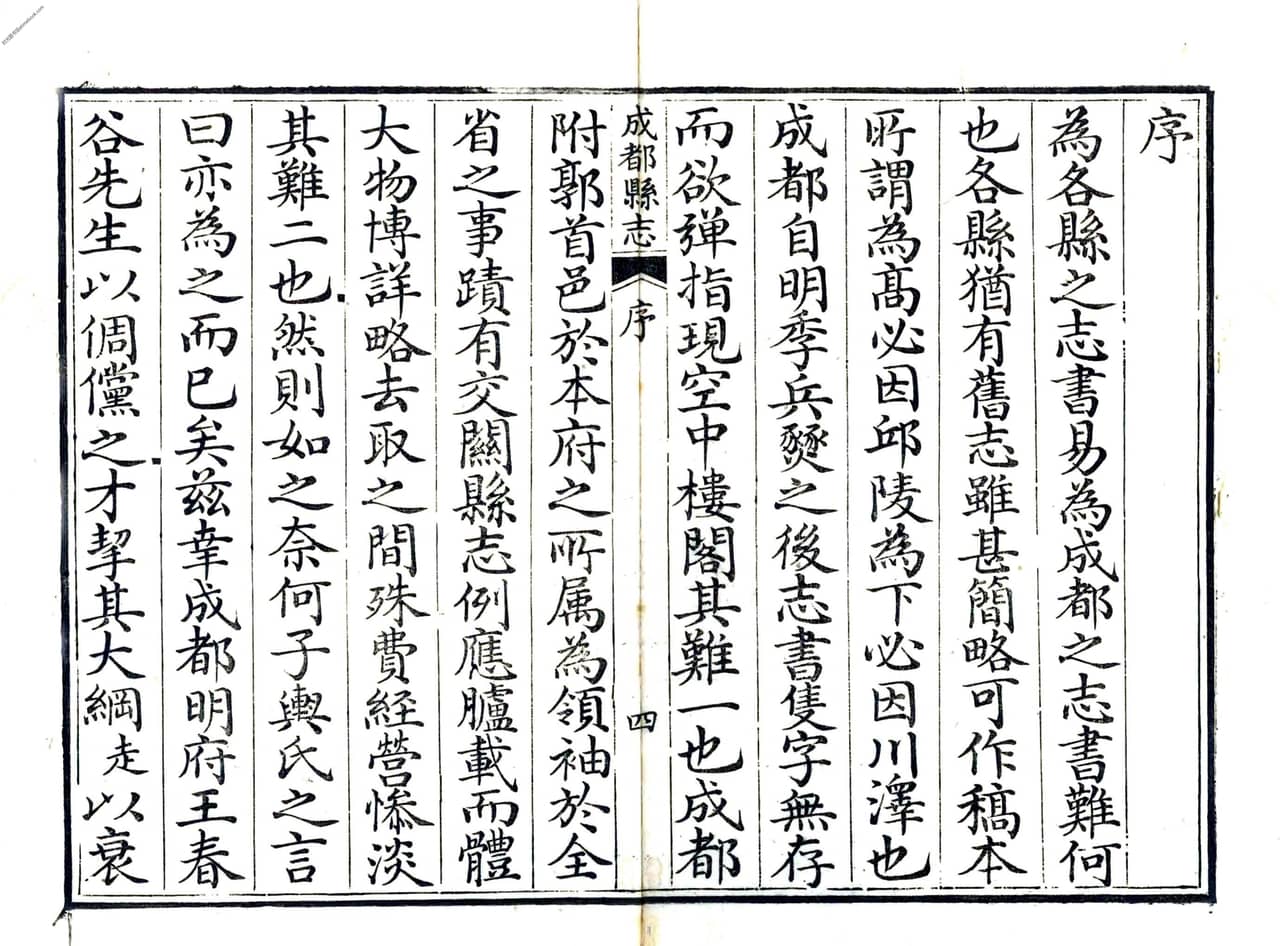 序
為各縣之志書易為成都之志書難何
也各縣猶有舊志雖甚簡略可作稿本
所謂為髙必因邱陵為下必因川澤也
成都自明季兵燹之後志書隻字無存
而欲弾指現空中樓閣其難一也成都
成都縣志
序
四
附郭首邑於本府之所属為領袖於全
省之事蹟有交關縣志例應臚載而體
大物博詳略去取之間殊費経營惨淡
其難二也然則如之奈何子輿氏之言
曰亦為之而已矣兹幸成都明府王春
谷先生以倜儻之才挈其大綱走以衰